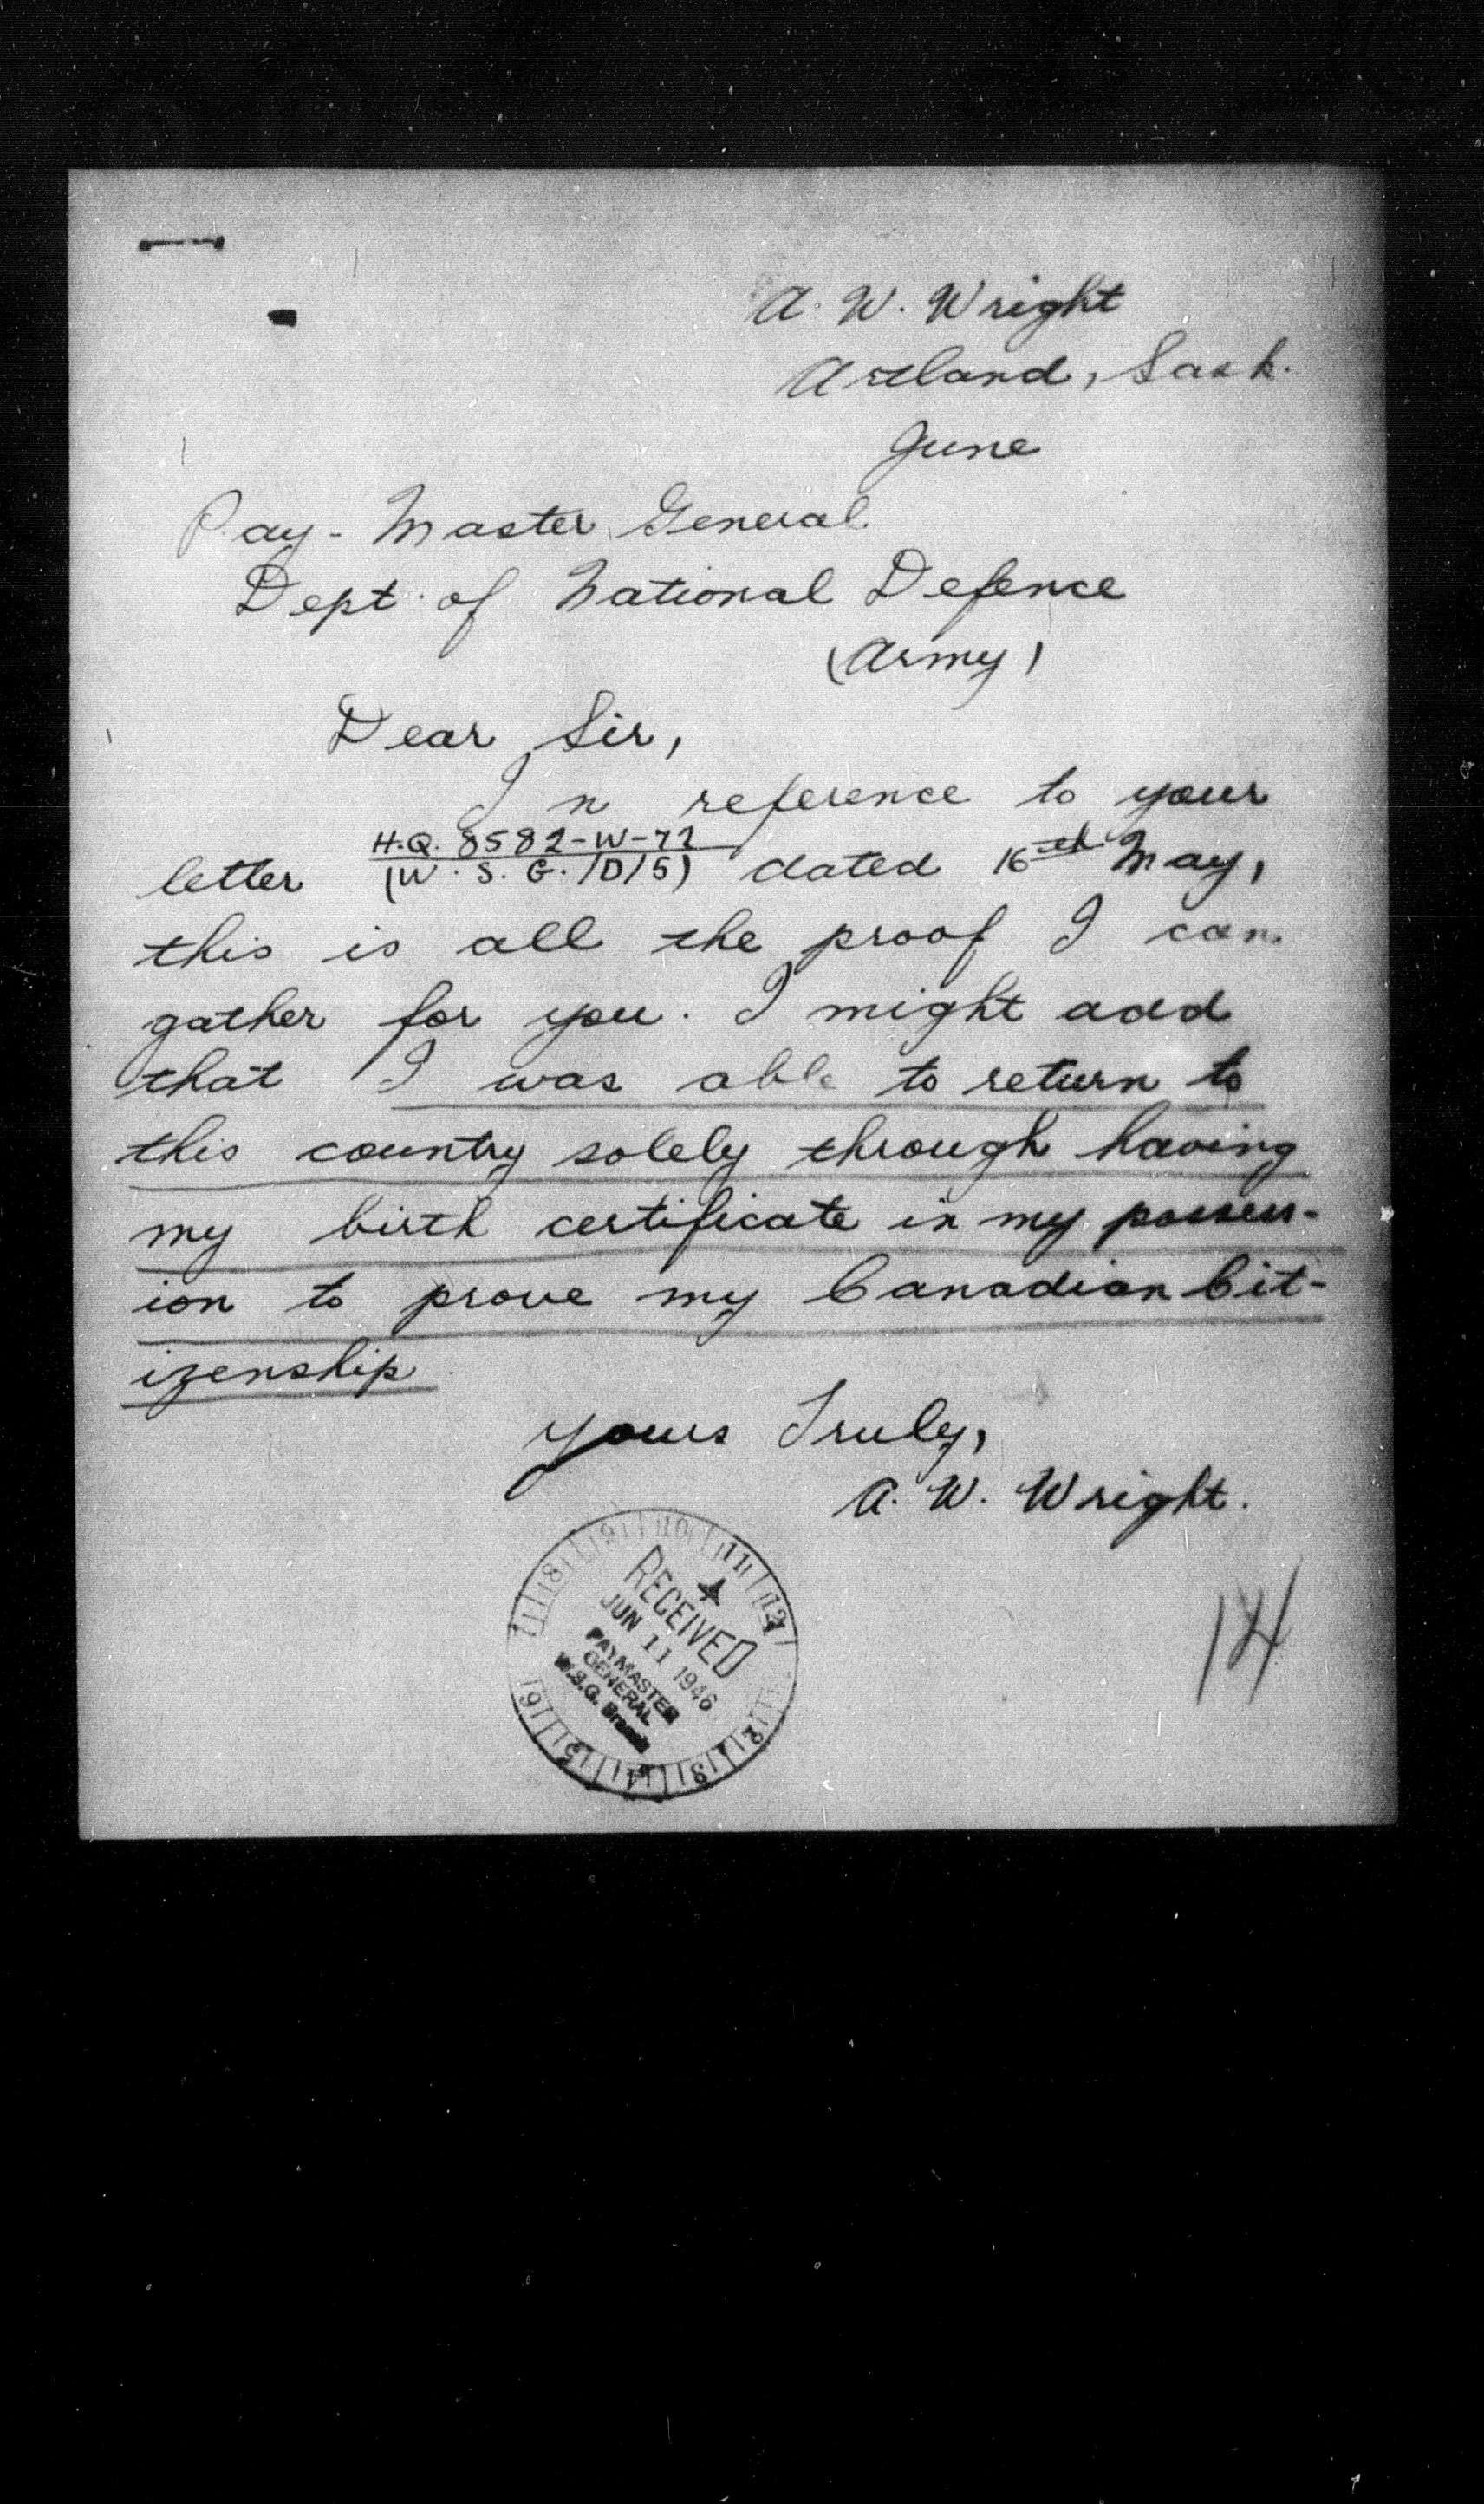 A. W. Wright
Artland, Sask.
June
Pay-Master General
Dept. of National Defence
(Army)
Dear Sir,
In reference to your
letter H.Q. 8582-W-72
(W.S.G./D/5) dated 16th May,
this is all the proof I can
gather for you. I might add
that I was able to return to
this country solely through having
my birth certificate in my possess-
ion to prove my Canadian Cit-
izenship
Yours Truly,
A. W. Wright.
RECEIVED
JUN 11 1946
PAYMASTER
GENERAL
W.S.G. Branch
14